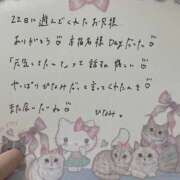 22日に遊んでくれたお兄様
ありがとう♡ 本指名様 DAYだった。
「元気してた〜?」って話すの嬉しい
やっぱりかなみだ。と言ってくれたのも
また会いたいね♡
かなみ..